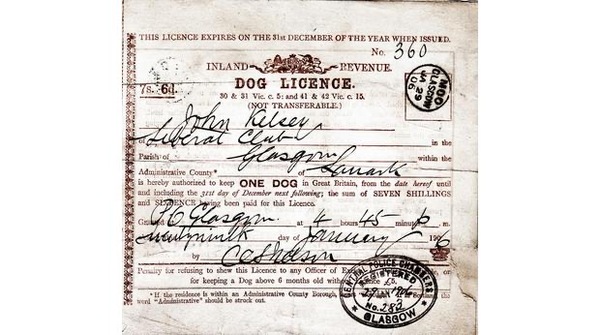 THIS LICENCE EXPIRES ON THE 31st DECEMBER OF THE YEAR WHEN ISSUED.
No. 360
INLAND REVENUE.
7s. 6d.
DOG LICENCE.
30 & 31 Vic. c. 5; and 41 & 42 Vic. c. 15.
(NOT TRANSFERABLE.)
GLASGOW
29
06
John Kelsey
of Liberal Club
in the
Parish of Glasgow within the
Administrative County* of Lanark
is hereby authorized to keep ONE DOG in Great Britain, from the date hereof until
and including the 31st day of December next following; the sum of SEVEN SHILLINGS
and SIXPENCE having been paid for this Licence.
Granted at Glasgow at 4 hours 45 minutes p.m.
day of January 1906
by
Penalty for refusing to shew this Licence to any Officer of
for keeping a Dog above 6 months old without
* If the residence is within an Administrative County Borough,
word "Administrative" should be struck out.
CENTRAL POLICE CHAMBERS
REGISTERED
29 JAN 1906
No. 283
GLASGOW